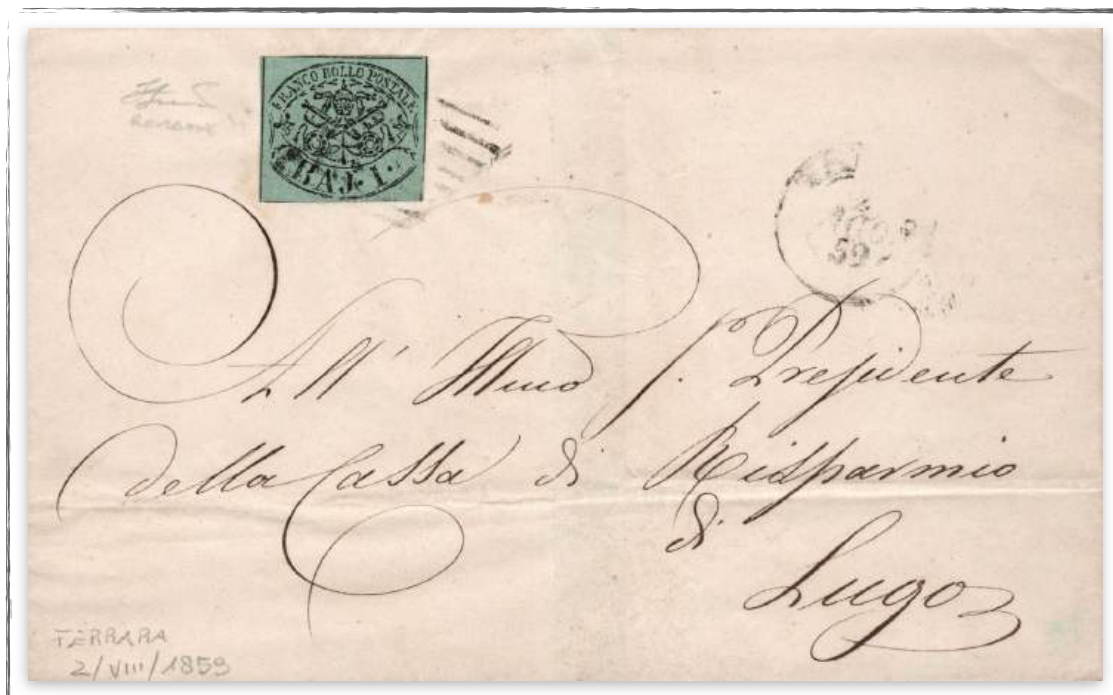 FRANCO BOLLO POSTALE
BAJ. 1.
59
All' Illmo S. Presidente
della Cassa di Risparmio
di
Lugo
FERRARA
2/VIII/1859